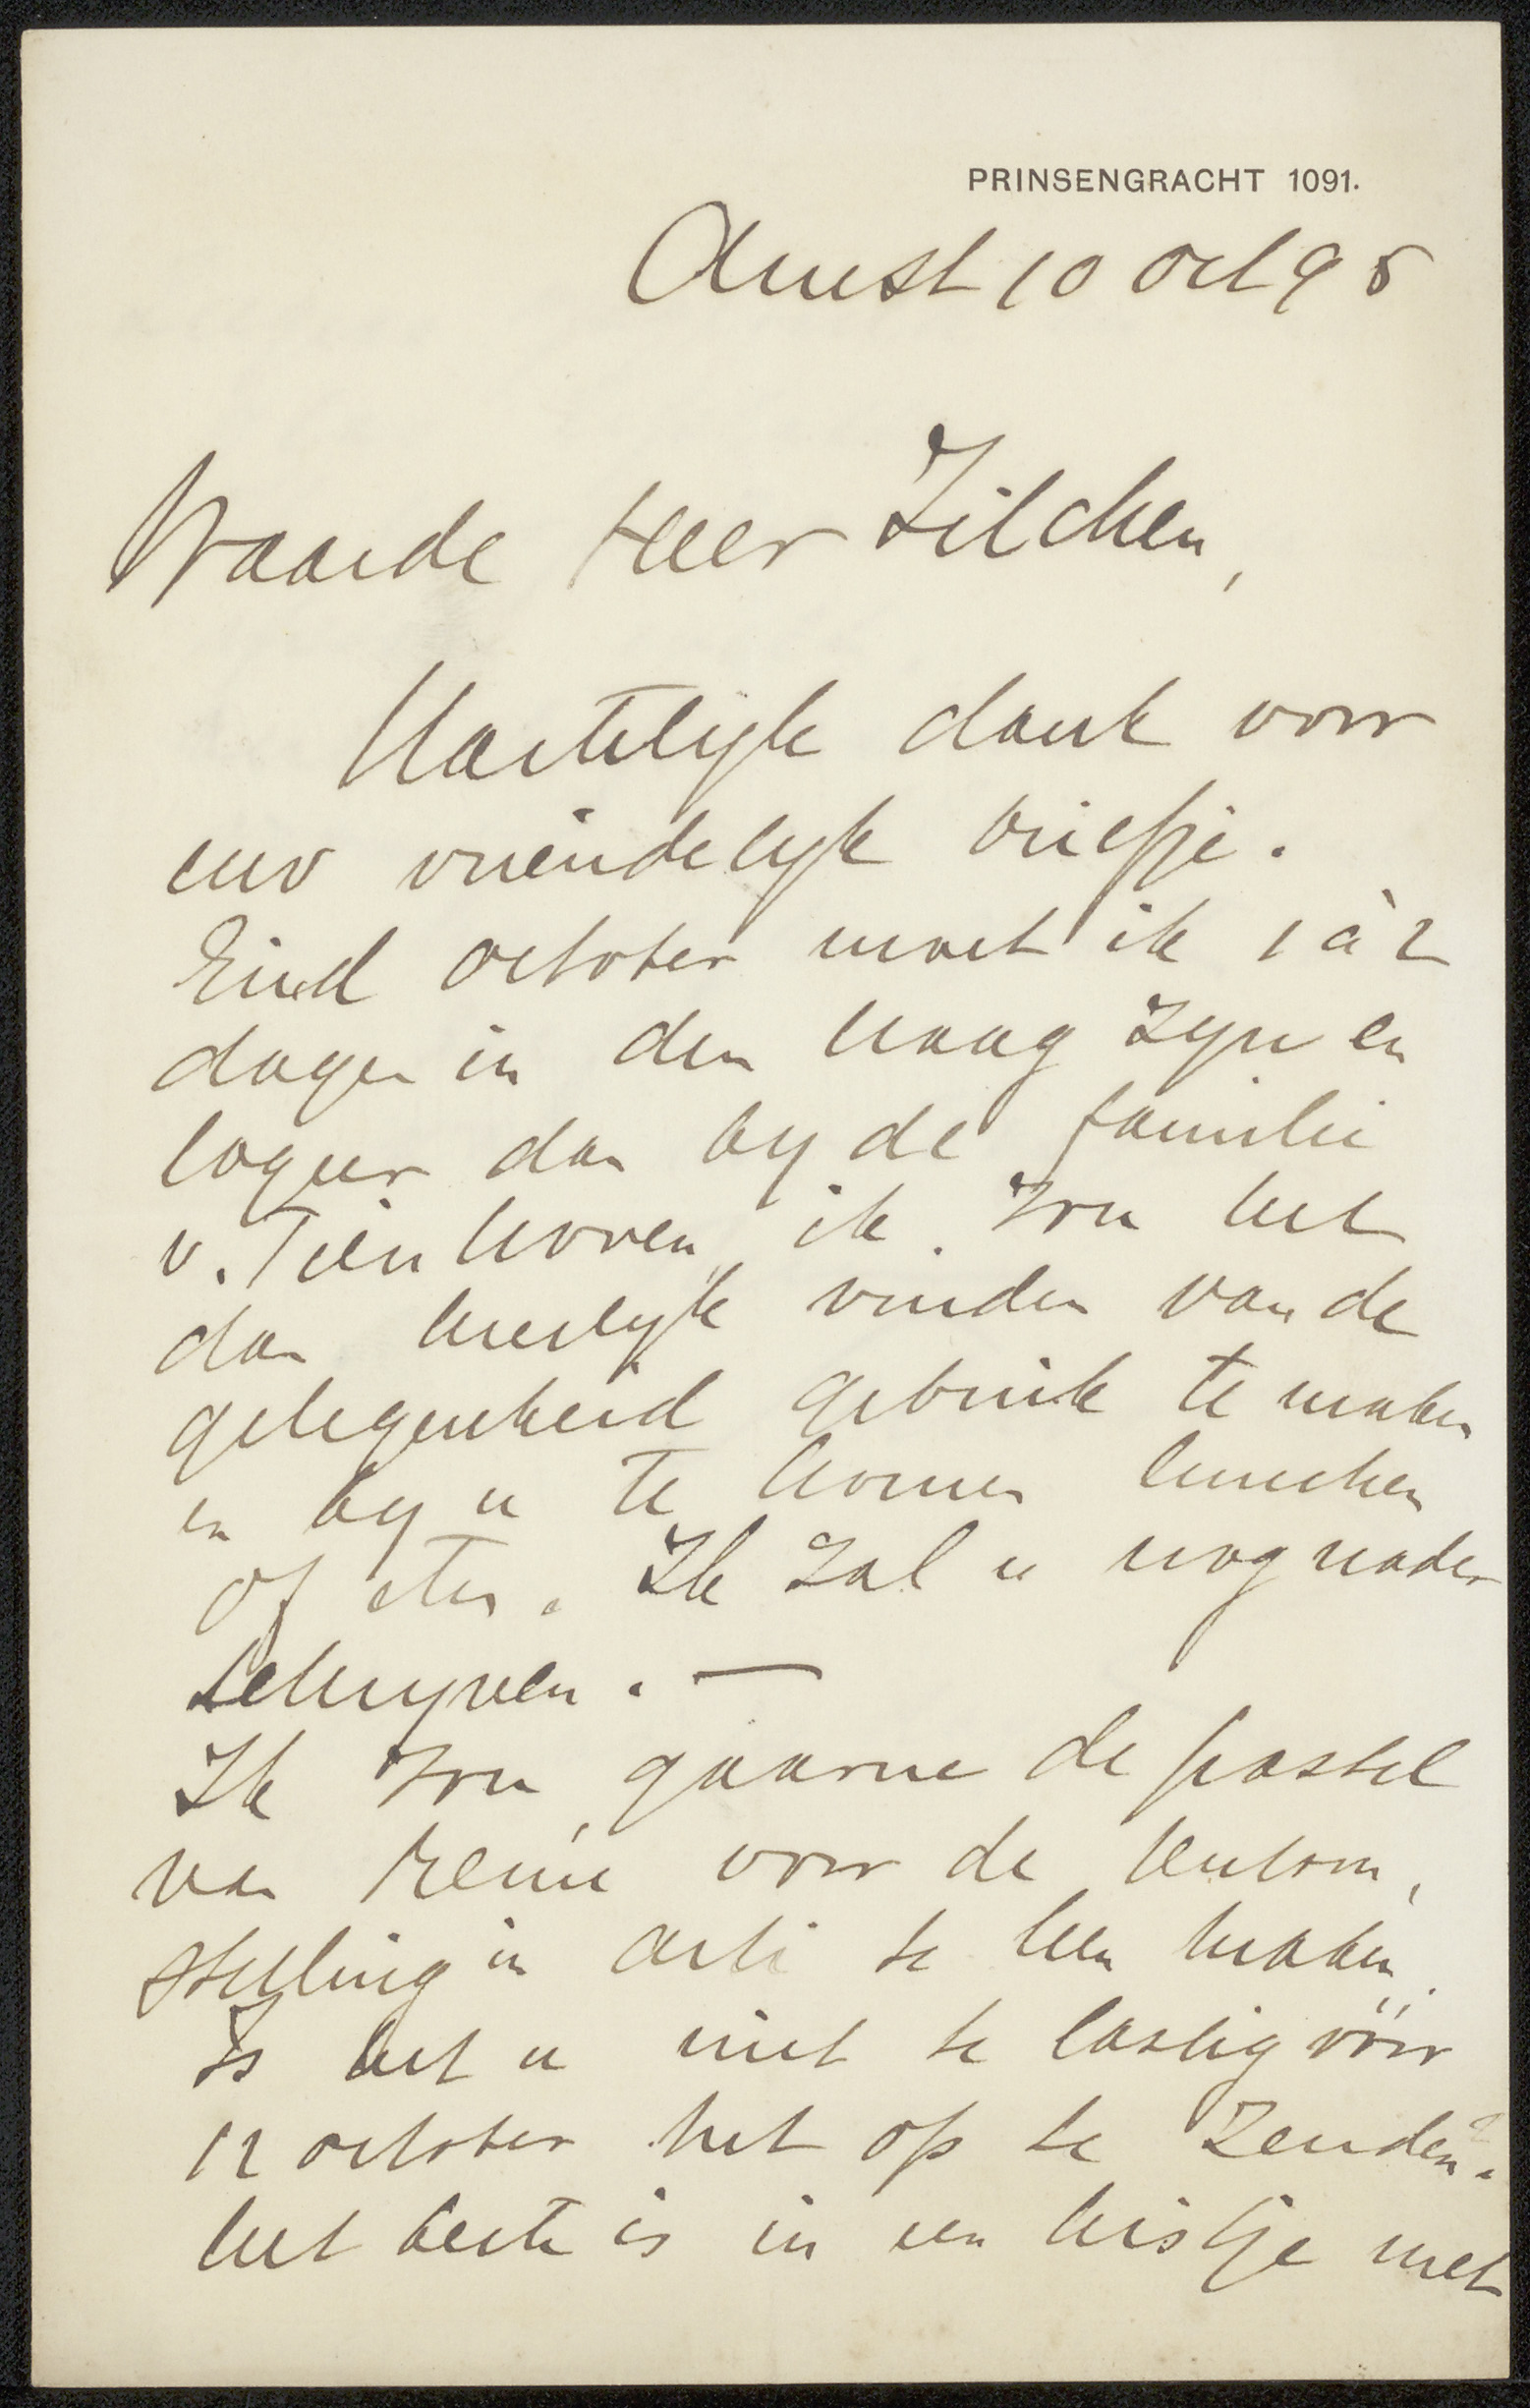 PRINSENGRACHT 1091.
Amst 10 Oct 95
Waarde Heer Zilcken,
Hartelijk dank voor
uw vriendelijk briefje.
Eind october moet ik 1 à 2
dagen in den Haag zijn en
logeer dan bij de familie
v. Tienhoven, ik zou het
dan heerlijk vinden van de
gelegenheid gebruik te maken
en bij u te komen lunchen
of eten. Ik zal u nog nader
schrijven. —
Ik zou gaarne de pastel
van voor de tentoon,
stelling in Arti te leen hebben.
Is het u niet te lastig vóór
12 october het op te zenden?
het beste is in een kistje met